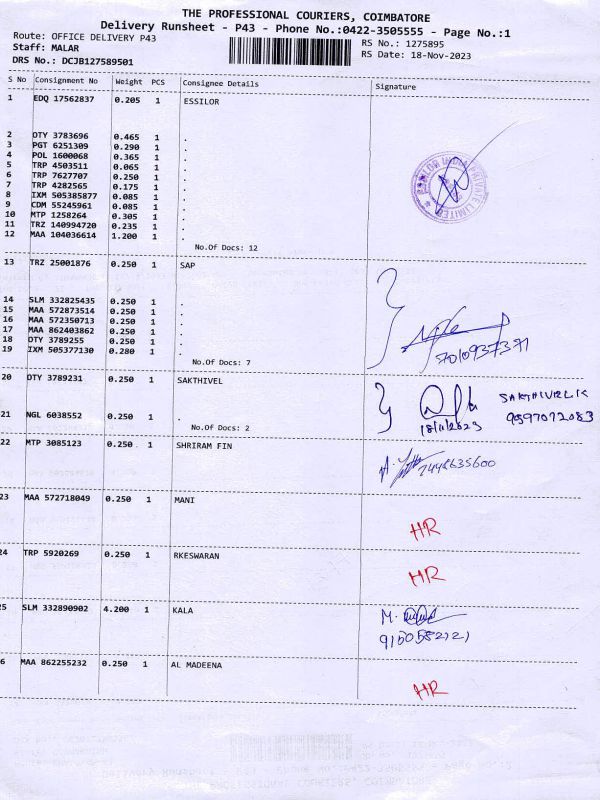 THE PROFESSIONAL COURIERS, COIMBATORE
Delivery Runsheet - P43 - Phone No.:0422-3505555 - Page No.:1
Route: OFFICE DELIVERY P43
RS No.: 1275895
Staff: MALAR
RS Date: 18-Nov-2023
DRS No.: DCJB127589501
S No Consignment No Weight PCS Consignee Details Signature
1 EDQ 17562837 0.205 1 ESSILOR
2 OTY 3783696 0.465 1 .
3 PGT 6251309 0.290 1 .
4 POL 1600068 0.365 1 .
5 TRP 4503511 0.065 1 .
6 TRP 7627707 0.250 1 .
7 TRP 4282565 0.175 1 .
8 IXM 505385877 0.085 1 .
9 CDM 55245961 0.085 1 .
10 MTP 1258264 0.305 1 .
11 TRZ 140994720 0.235 1 .
12 MAA 104036614 1.200 1 .
No.Of Docs: 12
13 TRZ 25001876 0.250 1 SAP
14 SLM 332825435 0.250 1 .
15 MAA 572873514 0.250 1 .
16 MAA 572350713 0.250 1 .
17 MAA 862403862 0.250 1 .
18 OTY 3789255 0.250 1 .
19 IXM 505377130 0.280 1 .
No.Of Docs: 7
7010937371
20 OTY 3789231 0.250 1 SAKTHIVEL
SAKTHIVEL K
21 NGL 6038552 0.250 1 .
18/11/2023 9597072083
No.Of Docs: 2
22 MTP 3085123 0.250 1 SHRIRAM FIN
7448635600
23 MAA 572718049 0.250 1 MANI
HR
24 TRP 5920269 0.250 1 RKESWARAN
HR
25 SLM 332890902 4.200 1 KALA
M.
9150582121
6 MAA 862255232 0.250 1 AL MADEENA
HR